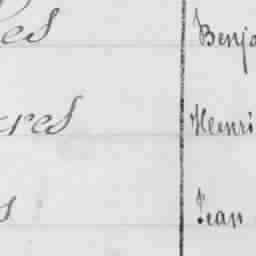 es Benja
cres Henri
s Jean